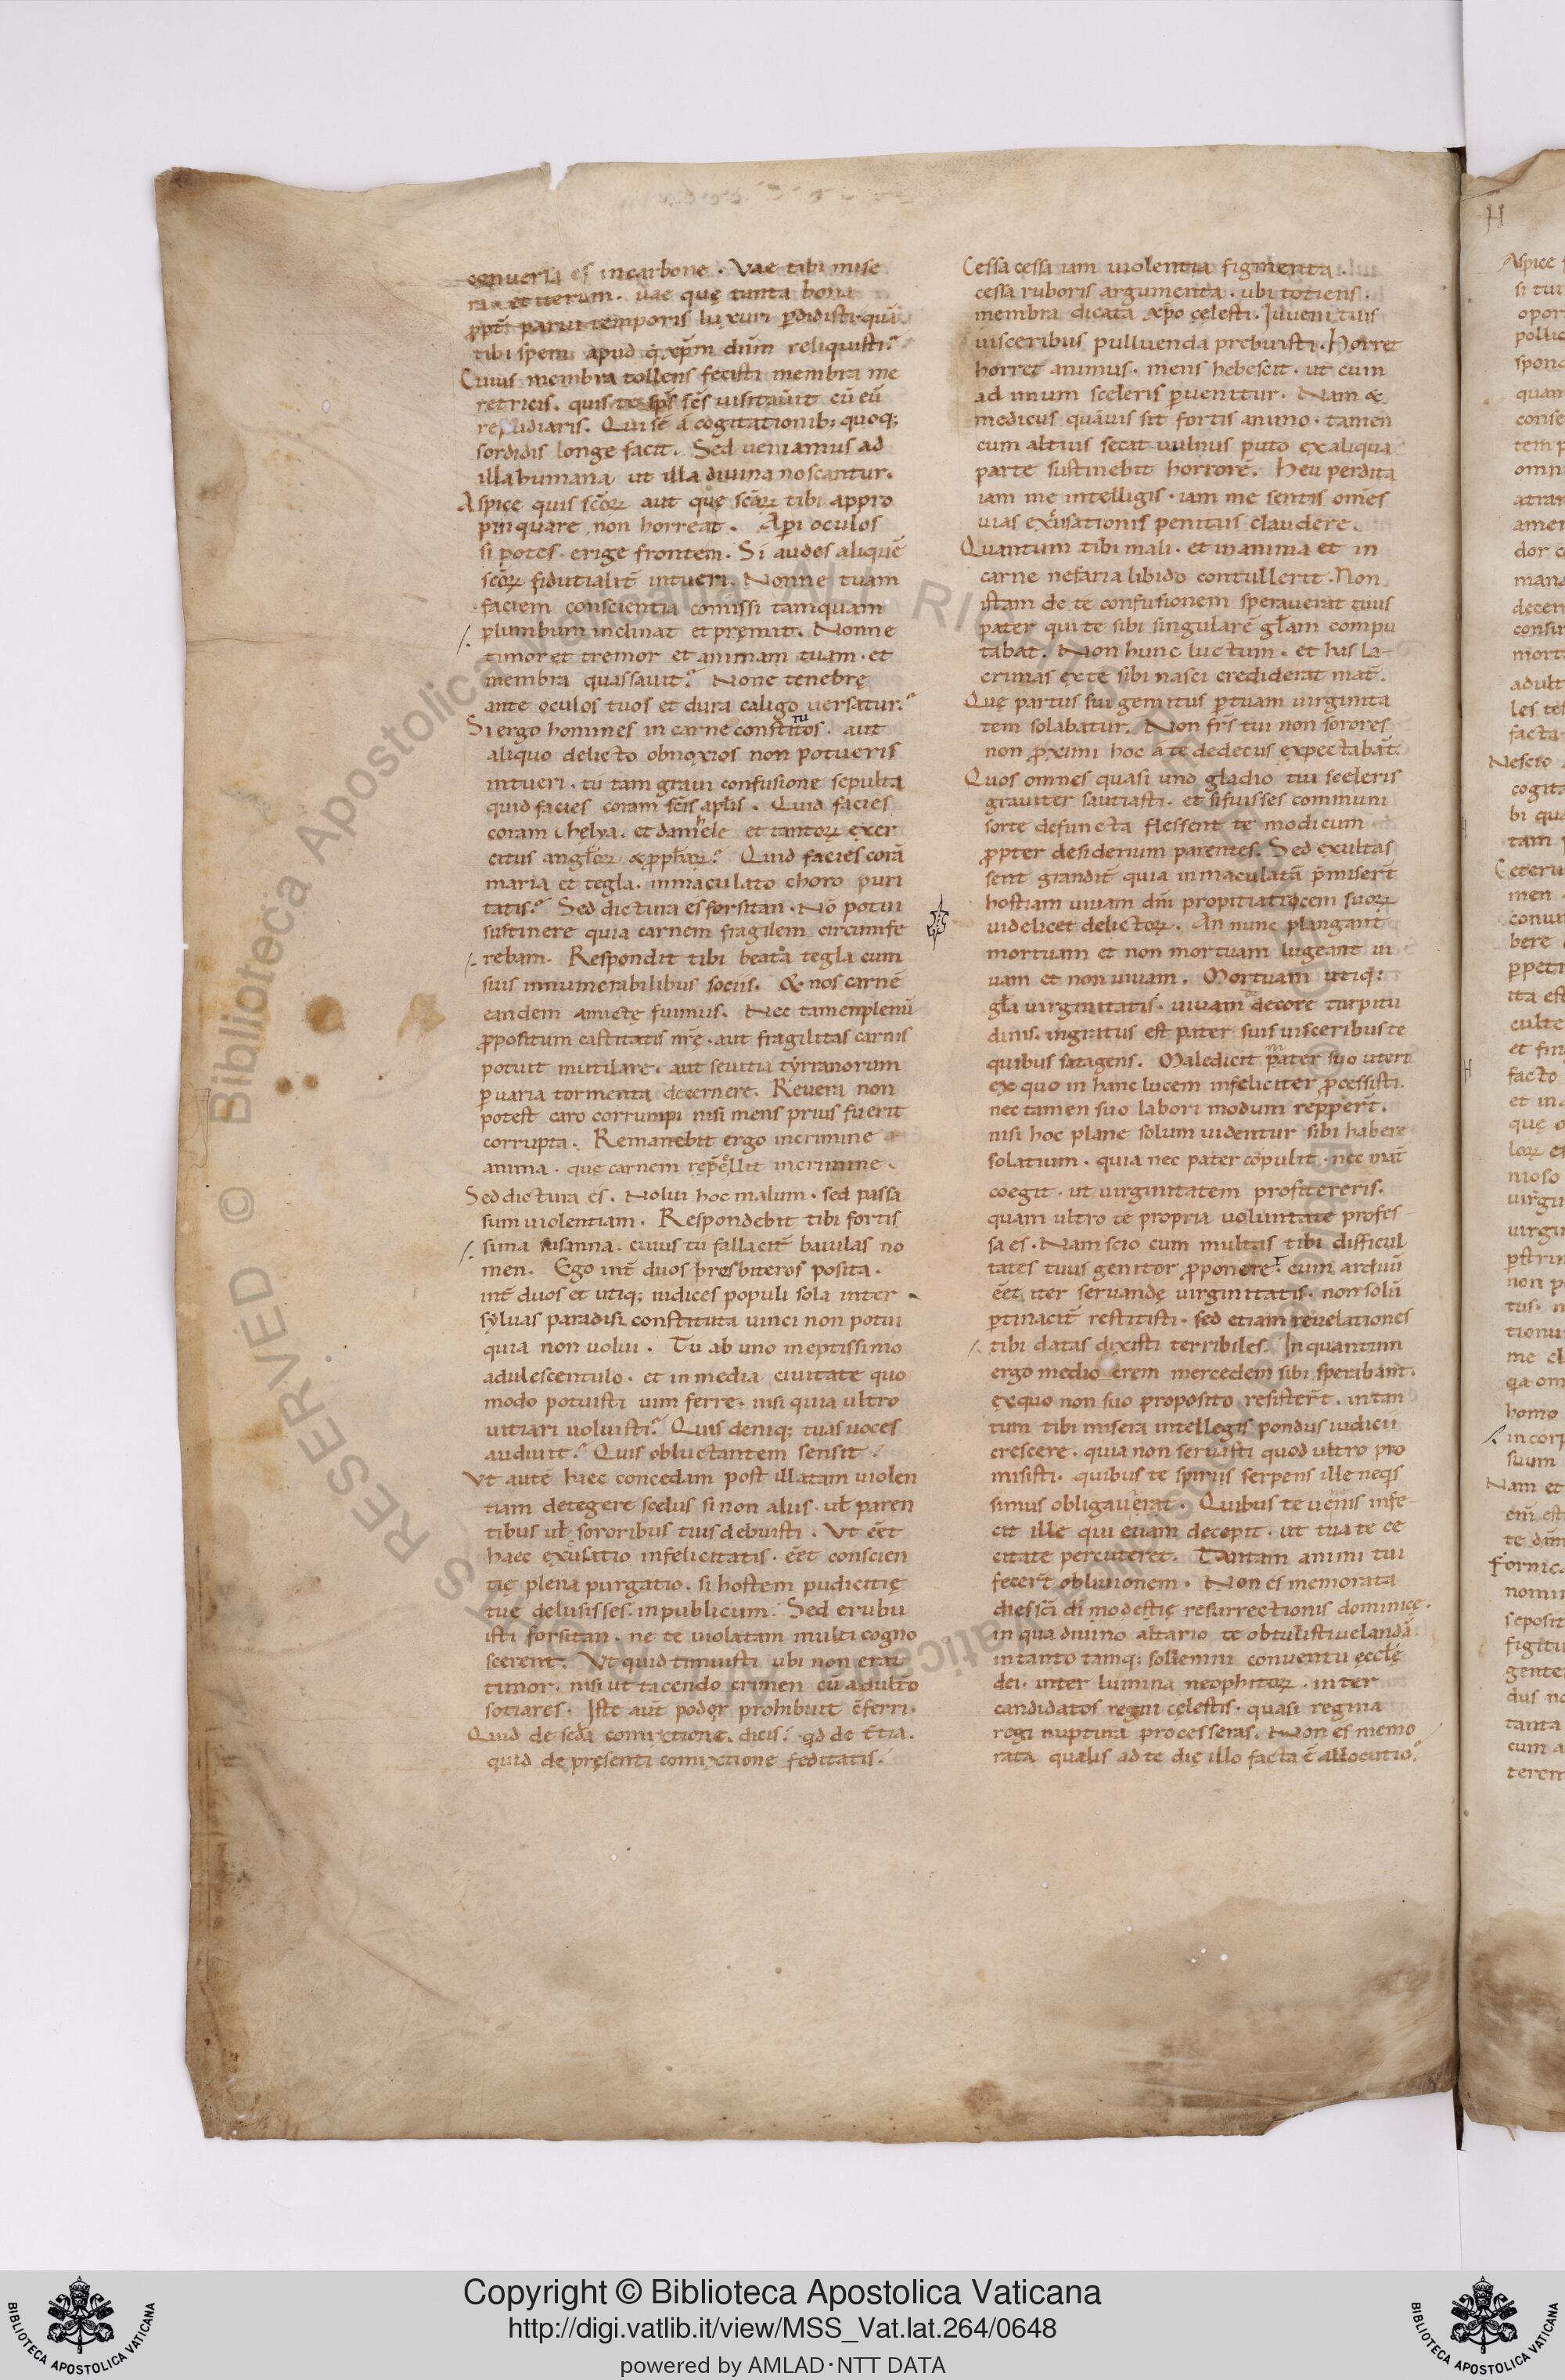 conuersa es incarbone. Vae tibi mise
ra. et iterum. uae quę tanta bona
ꝓpt̄ parui temporis luxuri ꝑdidisti. quā
tibi spem apud xp̄m dn̄m reliquisti?
Cuius membra tollens fecisti membra me
retricis. quis te sp̄s sc̄s uisitauit cū eū
repudiaris. Qui se a cogitationib; quoq;
sordidis longe facit. Sed ueniamus ad
illa humana ut illa diuina noscantur.
Aspice quis scōꝝ aut quę scāꝝ tibi appro
pinquare non horreat. Aperi oculos
si potes. erige frontem. Si audes aliquē
scōꝝ fidutialit̄ intueri. Nonne tuam
faciem conscientia comissi tamquam
plumbum inclinat et pręmit. Nonne
timor et tremor et animam tuam. et
membra quassauit? None tenebrę
ante oculos tuos et dura caligo uersatur?
Si ergo homines in carne constitutos. aut
aliquo delicto obnoxios non potueris
intueri. tu tam graui confusione sepulta
quid facies coram sc̄is apl̄is. Quid facies
coram helya. et danihele et tantoꝝ exer
citus angl̄oꝝ & ꝓph̄aꝝ? Quid facies corā
maria et tegla. inmaculato choro puri
tatis? Sed dictura es forsitan. Nō potui
sustinere quia carnem fragilem circumfe
rebam. Respondit tibi beata tegla cum
suis innumerabilibus sociis. & nos carnē
eandem amictę fuimus. Nec tamen plenū
ꝓpositum castitatis nr̄ę. aut fragilitas carnis
potuit mutilare. aut seuitia tyrranorum
ꝑ uaria tormenta decernere. Reuera non
potest caro corrumpi nisi mens prius fuerit
corrupta. Remanebit ergo incrimine
anima. que carnem repellit incrimine.
Sed dictura es. Nolui hoc malum. sed passa
sum uiolentiam. Respondebit tibi fortis
sima susanna. cuius tu fallacit̄ baiulas no
men. Ego int̄ duos presbiteros posita.
int̄ duos et utiq; iudices populi sola inter
syluas paradisi constituta uinci non potui
quia non uolui. Tu ab uno ineptissimo
adulescentulo. et in media ciuitate quo
modo potuisti uim ferre. nisi quia ultro
uitiari uoluisti? Quis deniq; tuas uoces
audiuit? Quis obluctantem sensit?
Vt autē haec concedam post illatam uiolen
tiam detegere scelus si non aliis. ul̄ paren
tibus ul̄ sororibus tuis debuisti. Vt eēt
haec excusatio infelicitatis. eēt conscien
tię plena purgatio. si hostem pudicitię
tuę delusisses. inpublicum. Sed erubu
isti forsitan. ne te uiolatam multi cogno
scerent. Vt quid timuisti ubi non erat
timor. nisi ut tacendo crimen cū adulto
sotiares. Iste aūt podor prohibuit
Quid de scd̄a comixtione. dicis? qd de t̄tia.
quid de pręsenti comixtione feditatis.
Cessa cessa iam uiolentia figmenta.
cessa ruboris argumenta. ubi totiens.
membra dicata xp̄o cęlesti. Iuueni tuis
uisceribus pulluenda prebuisti. Horret
horret animus. mens hebescit. ut cum
ad unum sceleris ꝑuenitur. Nam &
medicus quāuis sit fortis animo. tamen
cum altius secat uulnus puto ex aliqua
parte sustinebit horrorē. Heu perdita
iam me intelligis. iam me sentis omēs
uias excusationis penitus claudere.
Quantum tibi mali. et inanima et in
carne nefaria libido contullerit. Non
istam de te confusionem sperauerat tuus
pater qui te sibi singularē gl̄am compu
tabat. Non hunc luctum. et has la
crimas ex te sibi nasci crediderat mat̄.
Quę partus sui gemitus ꝑ tuam uirginita
tem solabatur. Non fr̄s tui non sorores
non ꝓximi hoc a te dedecus expectabāt.
Quos omnes quasi uno gladio tui sceleris
grauiter sautiasti. et si fuisses communi
sorte defuncta flessent te modicum
ꝓpter desiderium parentes. Sed exultas
sent grandit̄ quia inmaculatā p̄miserīt
hostiam uiuam dn̄i propitiatiocem suoꝝ
uidelicet delictoꝝ. An nunc plangant
mortuam et non mortuam lugeant ui
uam et non uiuam. Mortuam utiq:
gl̄a uirginitatis. uiuam decore turpitu
dinis. ingratus est pater suis uisceribus te
quibus satagens. Maledicit mater suo uteri
ex quo in hanc lucem infeliciter ꝓcessisti.
nec tamen suo labori modum reppert̄.
nisi hoc plane solum uidentur sibi habere
solatium. quia nec pater cōpulit. nec mat̄
coegit. ut uirginitatem profitereris.
quam ultro te propria uoluntate profes
sa es. Nam scio cum multas tibi difficul
tates tuus genitor ꝓponeret. cum arduū
eēt iter seruandę uirginitatis. non solū
ꝑtinacit̄ restitisti. sed etiam reuelationes
tibi datas dixisti terribiles. In quantum
ergo medio erem mercedem sibi speribant.
ex quo non suo proposito resistert̄. intan
tum tibi misera intellegis pondus iudicii
crescere. quia non seruisti quod ultro pro
misisti. quibus te spiriis serpens ille neqs
simus obligauerat. Quibus te uenenis infe
cit ille qui euam decepit. ut tua te ce
citate percuteret. Tantam animi tui
fecert̄ obliuionem. Non es memorata
diei sc̄i di modestię resurrectionis dominicę.
in qua diuino altario te obtulisti uelandā.
in tanto tamq; sollemni conuentu ęccl̄ę
dei. inter lumina neophitoꝝ. inter
candidatos regni cęlestis. quasi regina
regi nuptura processeras. Non es memo
rata qualis ad te die illo facta ē allocutio?
Copyright © Biblioteca Apostolica Vaticana
http://digi.vatlib.it/view/MSS_Vat.lat.264/0648
powered by AMLAD·NTT DATA
BIBLIOTECA APOSTOLICA VATICANA
BIBLIOTECA APOSTOLICA VATICANA